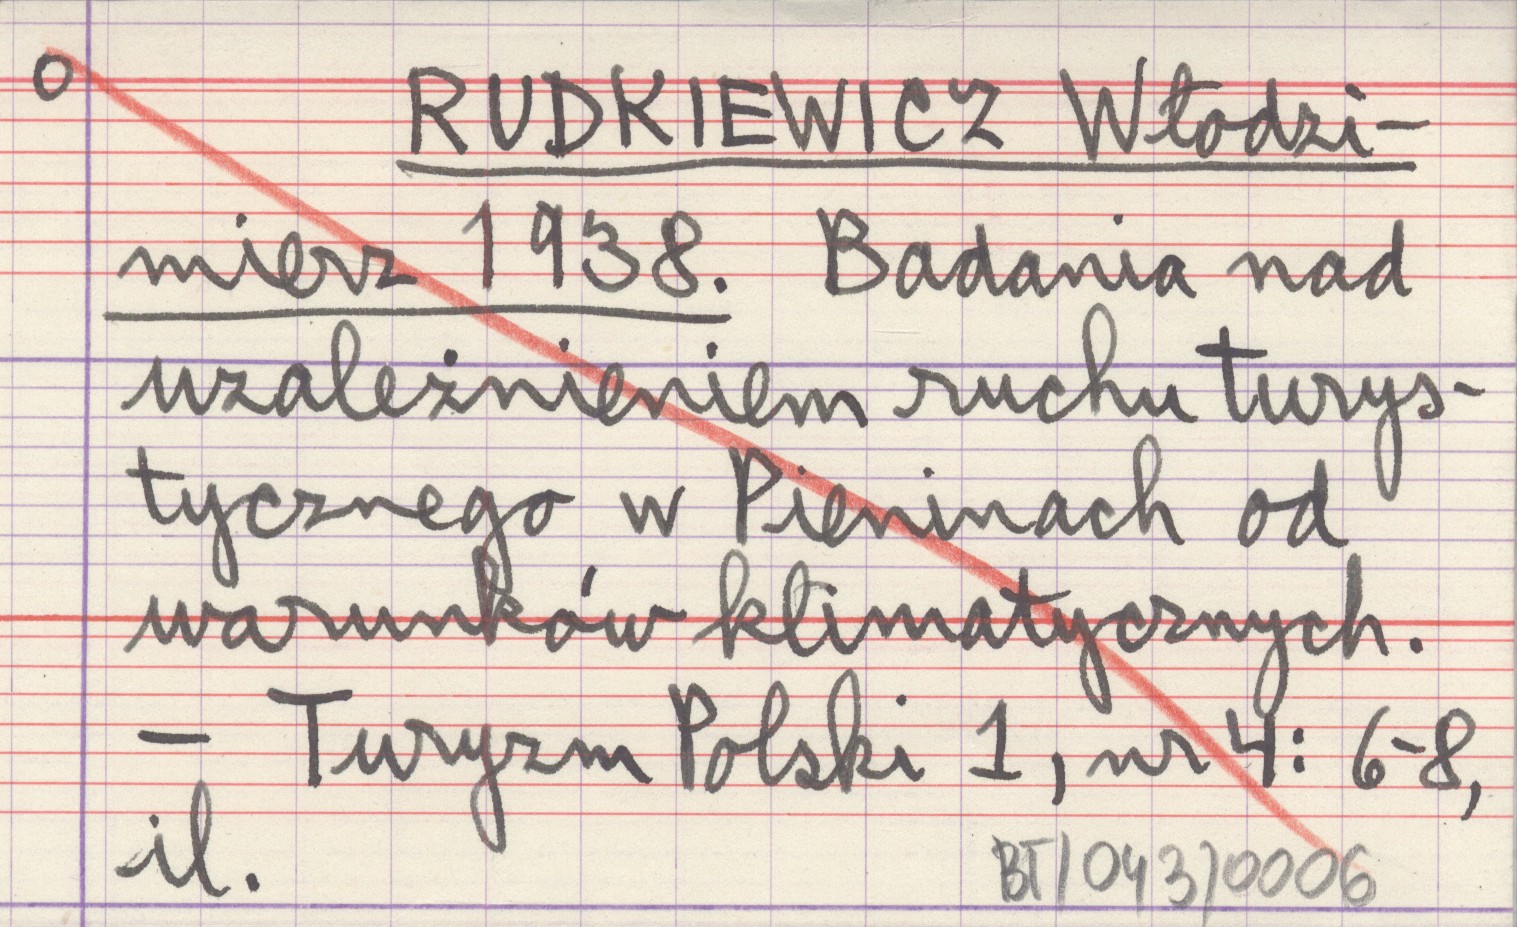 o RUDKIEWICZ Włodzi-
mierz 1938. Badania nad
uzależnieniem ruchu turys-
tycznego w Pieninach od
warunków klimatycznych.
– Turyzm Polski 1, nr 4: 6-8,
il.
BT/043/0006